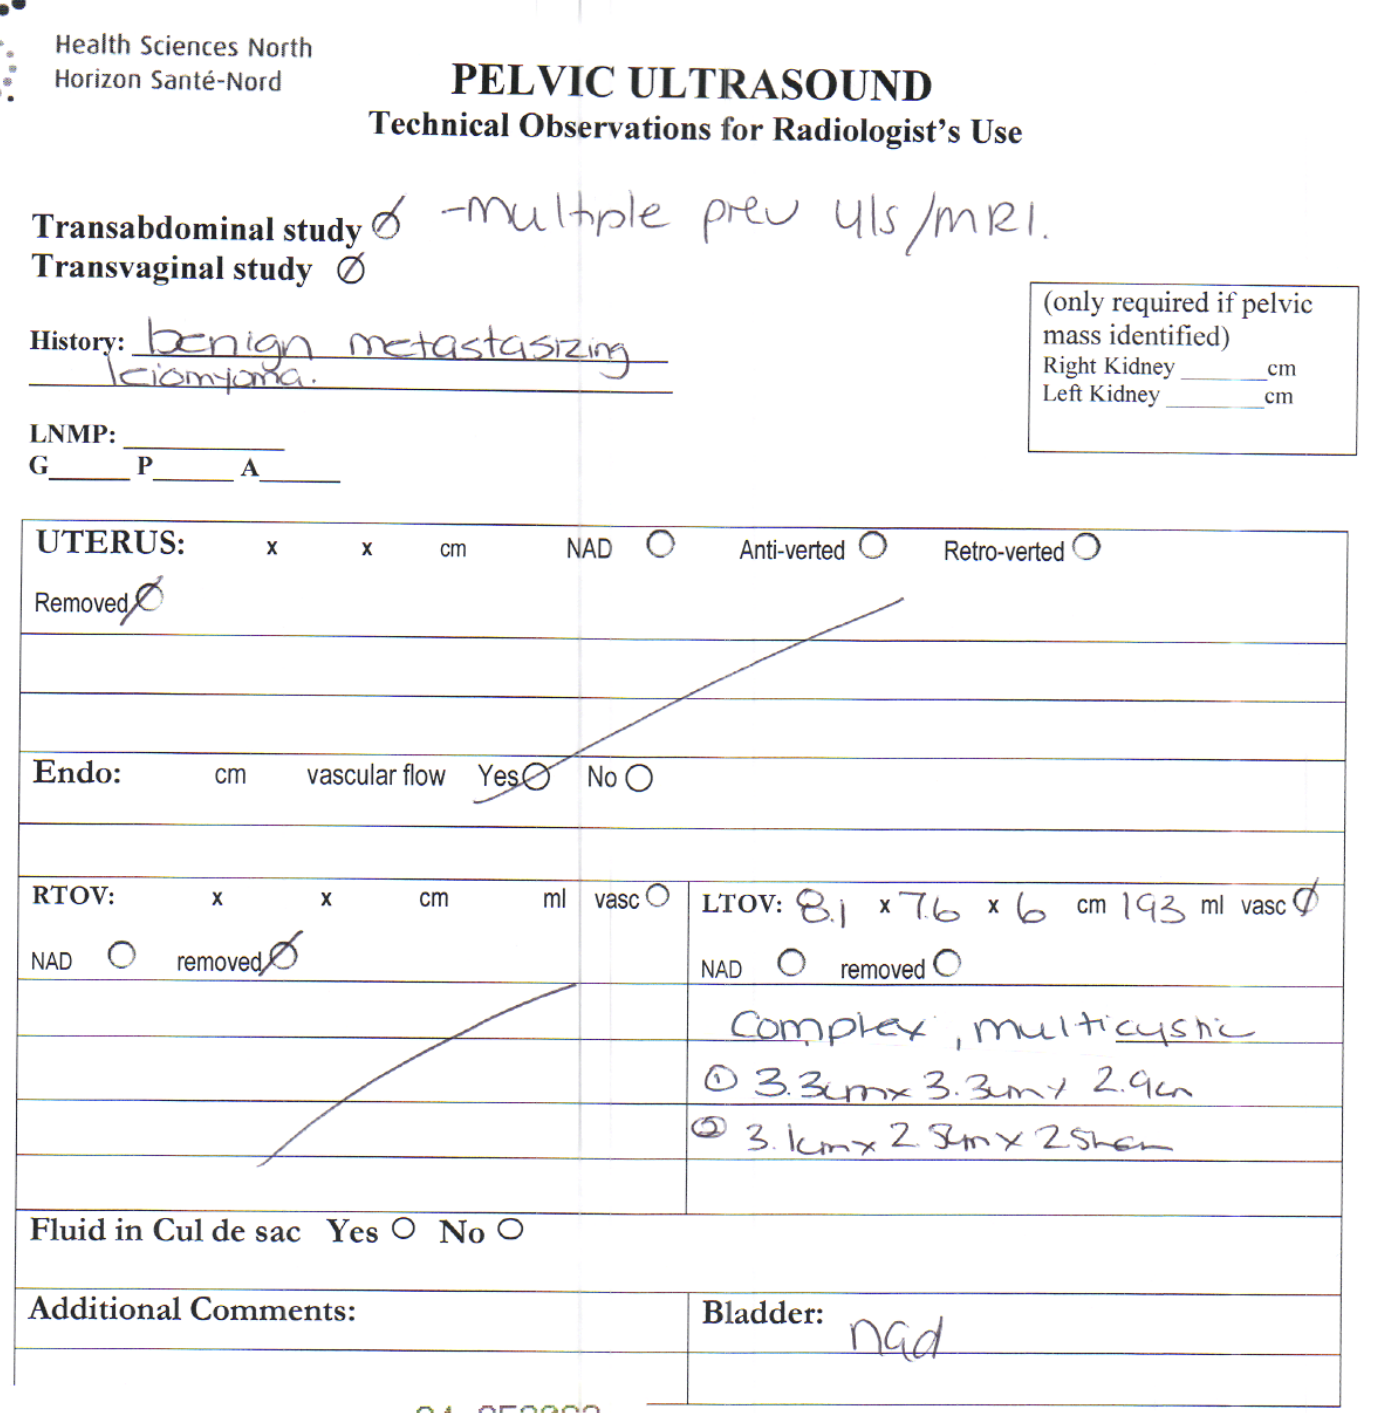 Health Sciences North
Horizon Santé-Nord
PELVIC ULTRASOUND
Technical Observations for Radiologist's Use
Transabdominal study -multiple prev U/s/MRI.
Transvaginal study
(only required if pelvic
mass identified)
Right Kidney ______ cm
Left Kidney ______ cm
History: benign metastasizing
leiomyoma.
LNMP:
G P A
UTERUS: x x cm NAD Anti-verted Retro-verted
Removed
Endo: cm vascular flow Yes No
RTOV: x x cm ml vasc
NAD removed
LTOV: 8.1 x 7.6 x 6 cm 193 ml vasc
NAD removed
Complex, multicystic
① 3.3cm x 3.3cm x 2.9cm
② 3.1cm x 2.5cm x
Fluid in Cul de sac Yes No
Additional Comments:
Bladder: nad